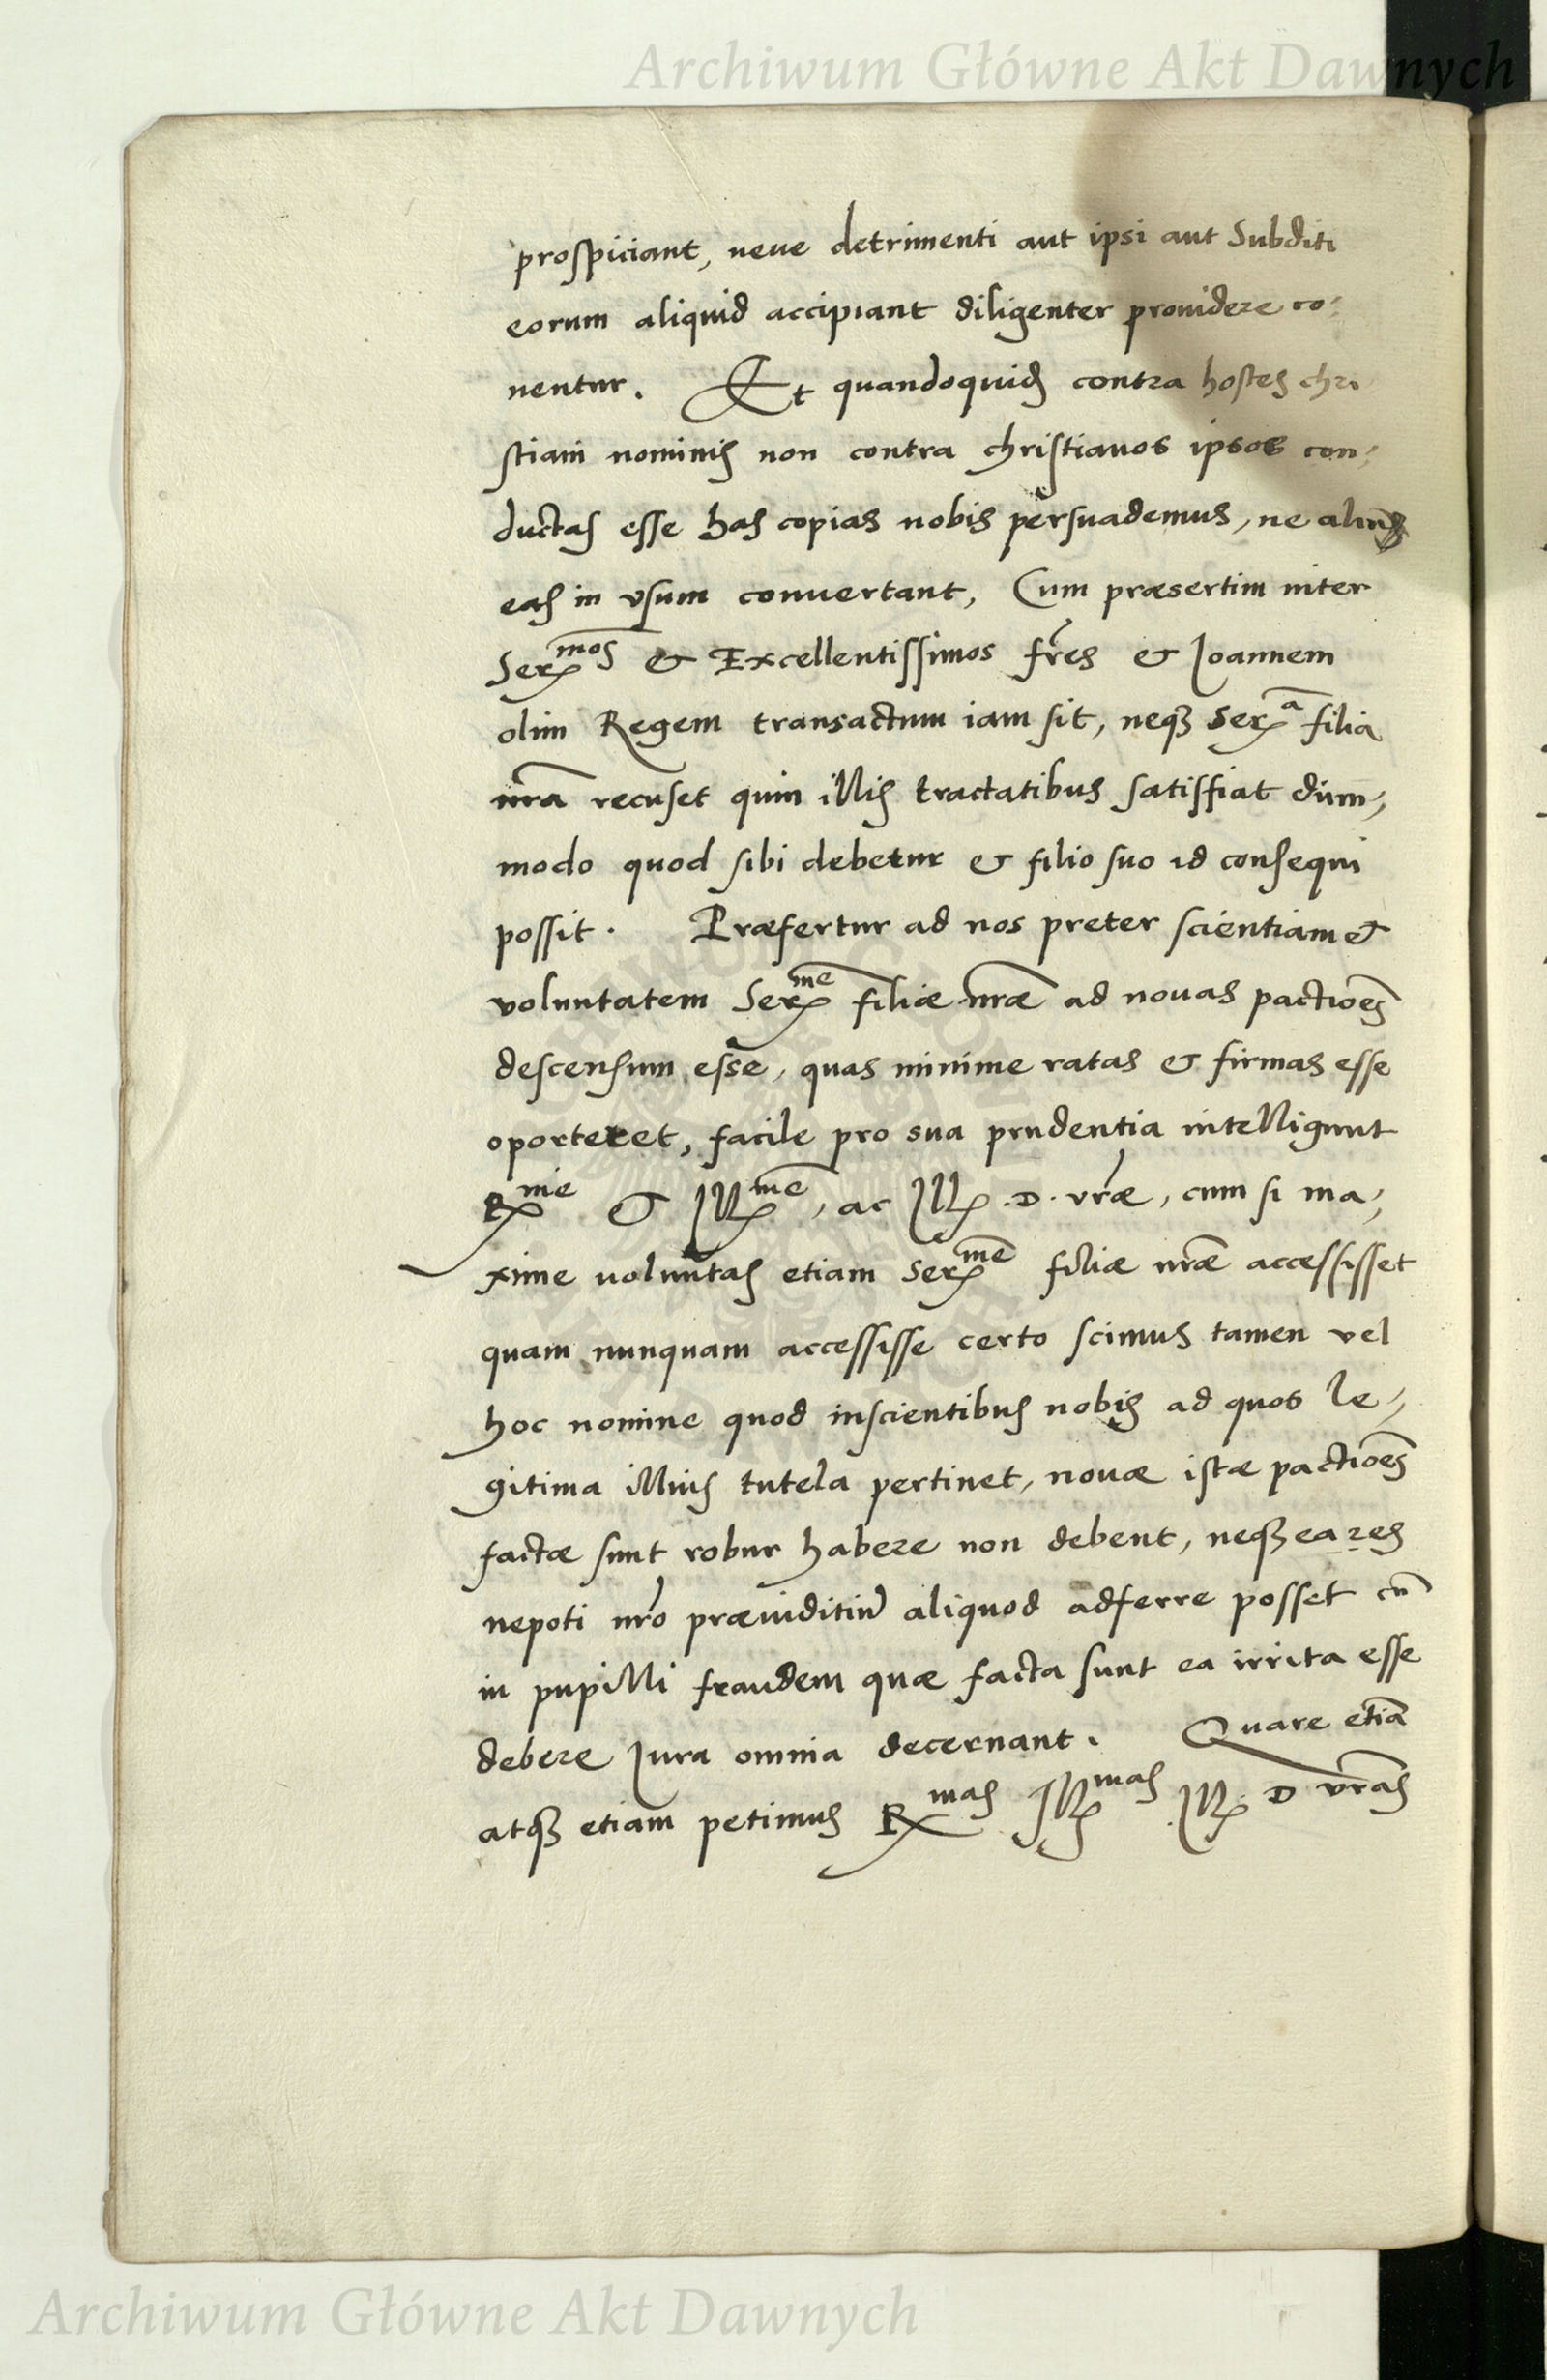 Archiwum Główne Akt Dawnych
prospiciant, neue detrimenti aut ipsi aut Subditi
eorum aliquid accipiant diligenter prouidere co-
nentur. Et quandoquidẽ contra hostes chri-
stiani nominis non contra christianos ipsos con-
ductas esse has copias nobis persuademus, ne alium
eas in vsum conuertant, Cum præsertim inter
Ser.mos & Excellentissimos fr̃es & Ioannem
olim Regem transactum iam sit, neq3 Ser.a filia
nr̃a recuset quin illis tractatibus satisfiat dum-
modo quod sibi debetur & filio suo id consequi
possit. Præfertur ad nos preter scientiam &
voluntatem Ser.me filiæ nr̃æ ad nouas pactiões
descensum esse, quas minime ratas & firmas esse
oporteret, facile pro sua prudentia intelligunt
R.me & Ill.me, ac Ill. D. vr̃æ, cum si ma-
xime voluntas etiam Ser.me filiæ nr̃æ accessisset
quam nunquam accessisse certo scimus tamen vel
hoc nomine quod inscientibus nobis ad quos le-
gitima illius tutela pertinet, nouæ istæ pactiões
factæ sunt robur habere non debent, neq3 ea res
nepoti nr̃o præiuditiũ aliquod adferre posset cũ
in pupilli fraudem quæ facta sunt ea irrita esse
debere Iura omnia decernant. Quare etiã
atq3 etiam petimus R.mas Ill.mas Ill. D vr̃as
Archiwum Główne Akt Dawnych